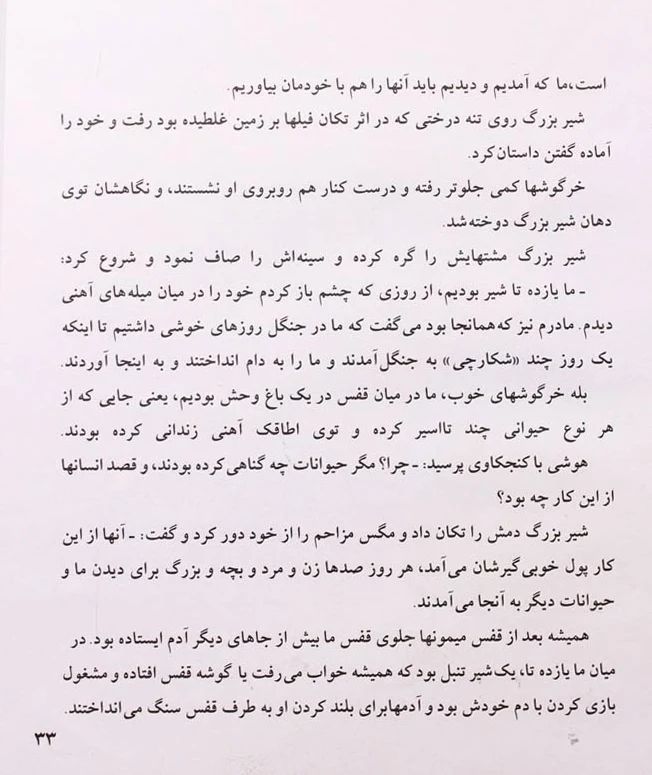 است،ما که آمدیم و دیدیم باید آنها را هم با خودمان بیاوریم.
شیر بزرگ روی تنه درختی که در اثر تکان فیلها بر زمین غلطیده بود رفت و خود را
آماده گفتن داستان‌کرد.
خرگوشها کمی جلوتر رفته و درست کنار هم روبروی او نشستند، و نگاهشان توی
دهان شیر بزرگ دوخته‌شد.
شیر بزرگ مشتهایش را گره کرده و سینه‌اش را صاف نمود و شروع کرد:
ـ ما یازده تا شیر بودیم، از روزی که چشم باز کردم خود را در میان میله‌های آهنی
دیدم. مادرم نیز که‌همانجا بود می‌گفت که ما در جنگل روزهای خوشی داشتیم تا اینکه
یک روز چند «شکارچی» به جنگل‌آمدند و ما را به دام انداختند و به اینجا آوردند.
بله خرگوشهای خوب، ما در میان قفس در یک باغ وحش بودیم، یعنی جایی که از
هر نوع حیوانی چند تااسیر کرده و توی اطاقک آهنی زندانی کرده بودند.
هوشی با کنجکاوی پرسید: ـ چرا؟ مگر حیوانات چه گناهی‌کرده بودند، و قصد انسانها
از این کار چه بود؟
شیر بزرگ دمش را تکان داد و مگس مزاحم را از خود دور کرد و گفت: ـ آنها از این
کار پول خوبی‌گیرشان می‌آمد، هر روز صدها زن و مرد و بچه و بزرگ برای دیدن ما و
حیوانات دیگر به آنجا می‌آمدند.
همیشه بعد از قفس میمونها جلوی قفس ما بیش از جاهای دیگر آدم ایستاده بود. در
میان ما یازده تا، یک‌شیر تنبل بود که همیشه خواب می‌رفت یا گوشه قفس افتاده و مشغول
بازی کردن با دم خودش بود و آدمهابرای بلند کردن او به طرف قفس سنگ می‌انداختند.
۳۳